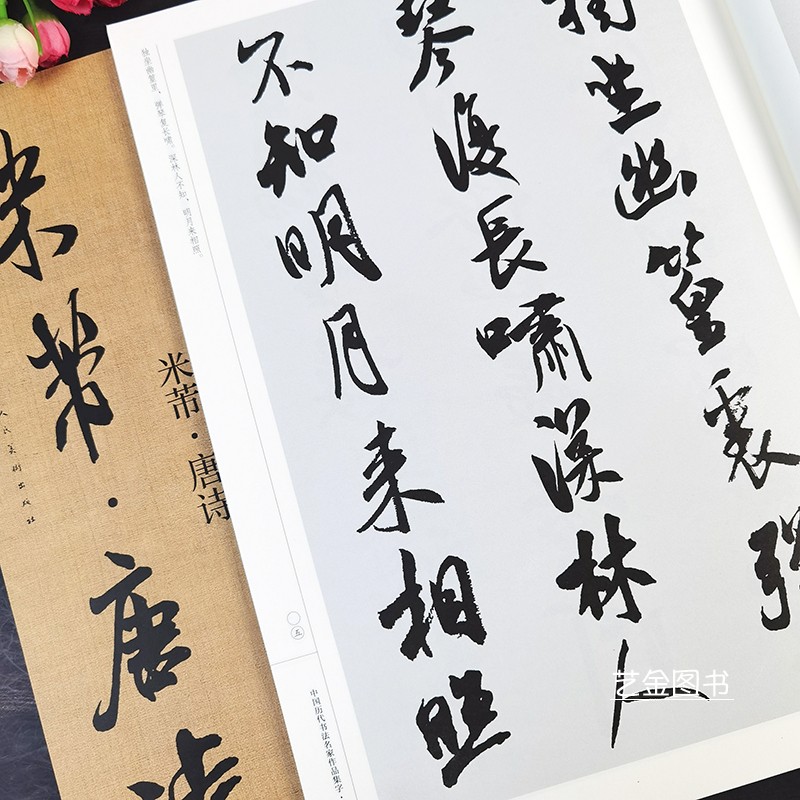 獨坐幽篁裏彈
琴復長嘯深林人
不知明月来相照
独坐幽篁里，弹琴复长啸。深林人不知，明月来相照。
〇五
中国历代书法名家作品集字·
米芾·唐诗
米芾·唐詩
人民美術出版社
艺金图书